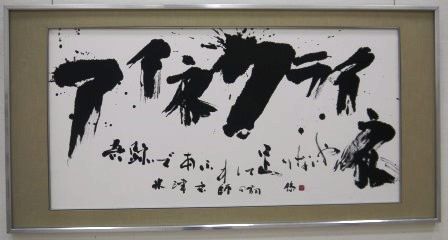 アイネクライネ
奇跡であふれて足りないや
米津玄師の詞